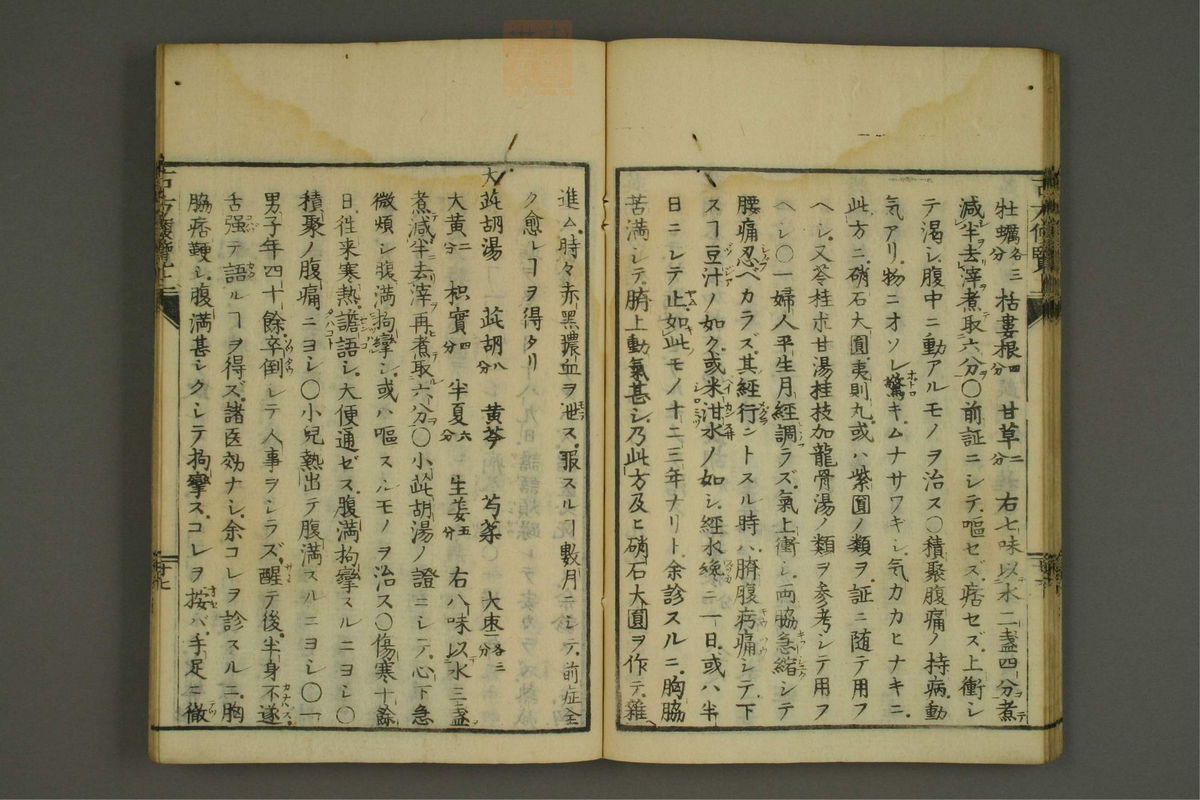 牡蠣各三分 括蔞根四分 甘草二分 右七味以水二盞四分煮
減半去滓煮取六分〇前証ニシテ嘔セズ痞セズ上衝シ
テ渇シ腹中ニ動アルモノヲ治ス〇積聚腹痛ノ持病動
気アリ物ニオソレ驚キムナサワキシ気カカヒナキニ
此方ニ硝石大圓夷則丸或ハ紫圓ノ類ヲ証ニ随テ用フ
ヘシ又苓桂朮甘湯桂枝加龍骨湯ノ類ヲ参考シテ用フ
ヘシ〇一婦人平生月經調ラズ氣上衝シ両脇急縮シテ
腰痛忍ベカラズ其經行ントスル時ハ臍腹㽲痛シテ下
スヿ豆汁ノ如ク或米泔水ノ如シ經水纔ニ一日或ハ半
日ニシテ止如此モノ十二三年ナリト余診スルニ胸脇
苦満シテ臍上動氣甚シ乃此方及ヒ硝石大圓ヲ作テ雜
進ム時々赤黑膿血ヲ泄ス服スルヿ數月ニシテ前症全
ク愈シヿヲ得タリ
大茈胡湯 茈胡八分 黄芩 芍薬 大枣各三分
大黄二分 枳實四分 半夏六分 生姜五分 右八味以水三盞
煮減半去滓再煮取六分〇小茈胡湯ノ證ニシテ心下急
微煩シ腹満拘攣シ或ハ嘔スルモノヲ治ス〇傷寒十餘
日往来寒熱譫語シ大便通ゼス腹満拘攣スルニヨシ〇
積聚ノ腹痛ニヨシ〇小兒熱出テ腹満スルニヨシ〇一
男子年四十餘卒倒シテ人事ヲシラズ醒テ後半身不遂
舌强テ語ルヿヲ得ズ諸医効ナシ余コレヲ診スルニ胸
脇痞鞕シ腹満甚シクシテ拘攣スコレヲ按バ手足ニ徹